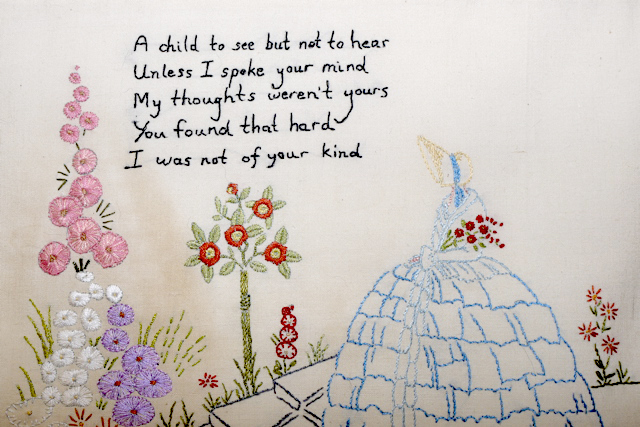 A child to see but not to hear
Unless I spoke your mind
My thoughts weren't yours
You found that hard
I was not of your kind